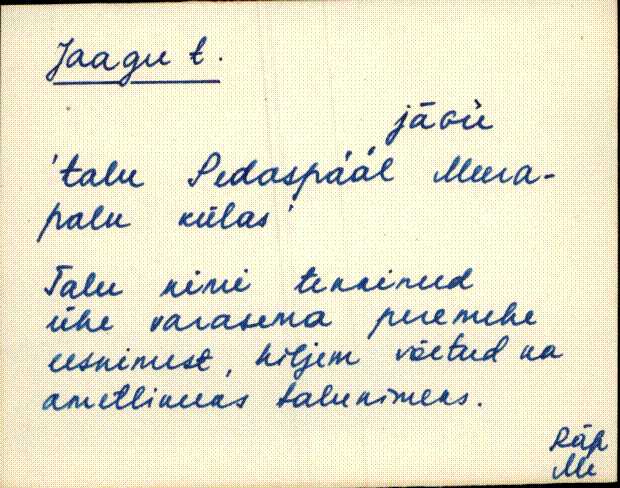 Jaagu t.
jāGù
'talu Pedaspääl Meera-
palu külas'
Talu nimi tekkinud
ühe varasema peremehe
eesnimest, hiljem võetud ka
ametlikuks talunimeks.
Räp
Me